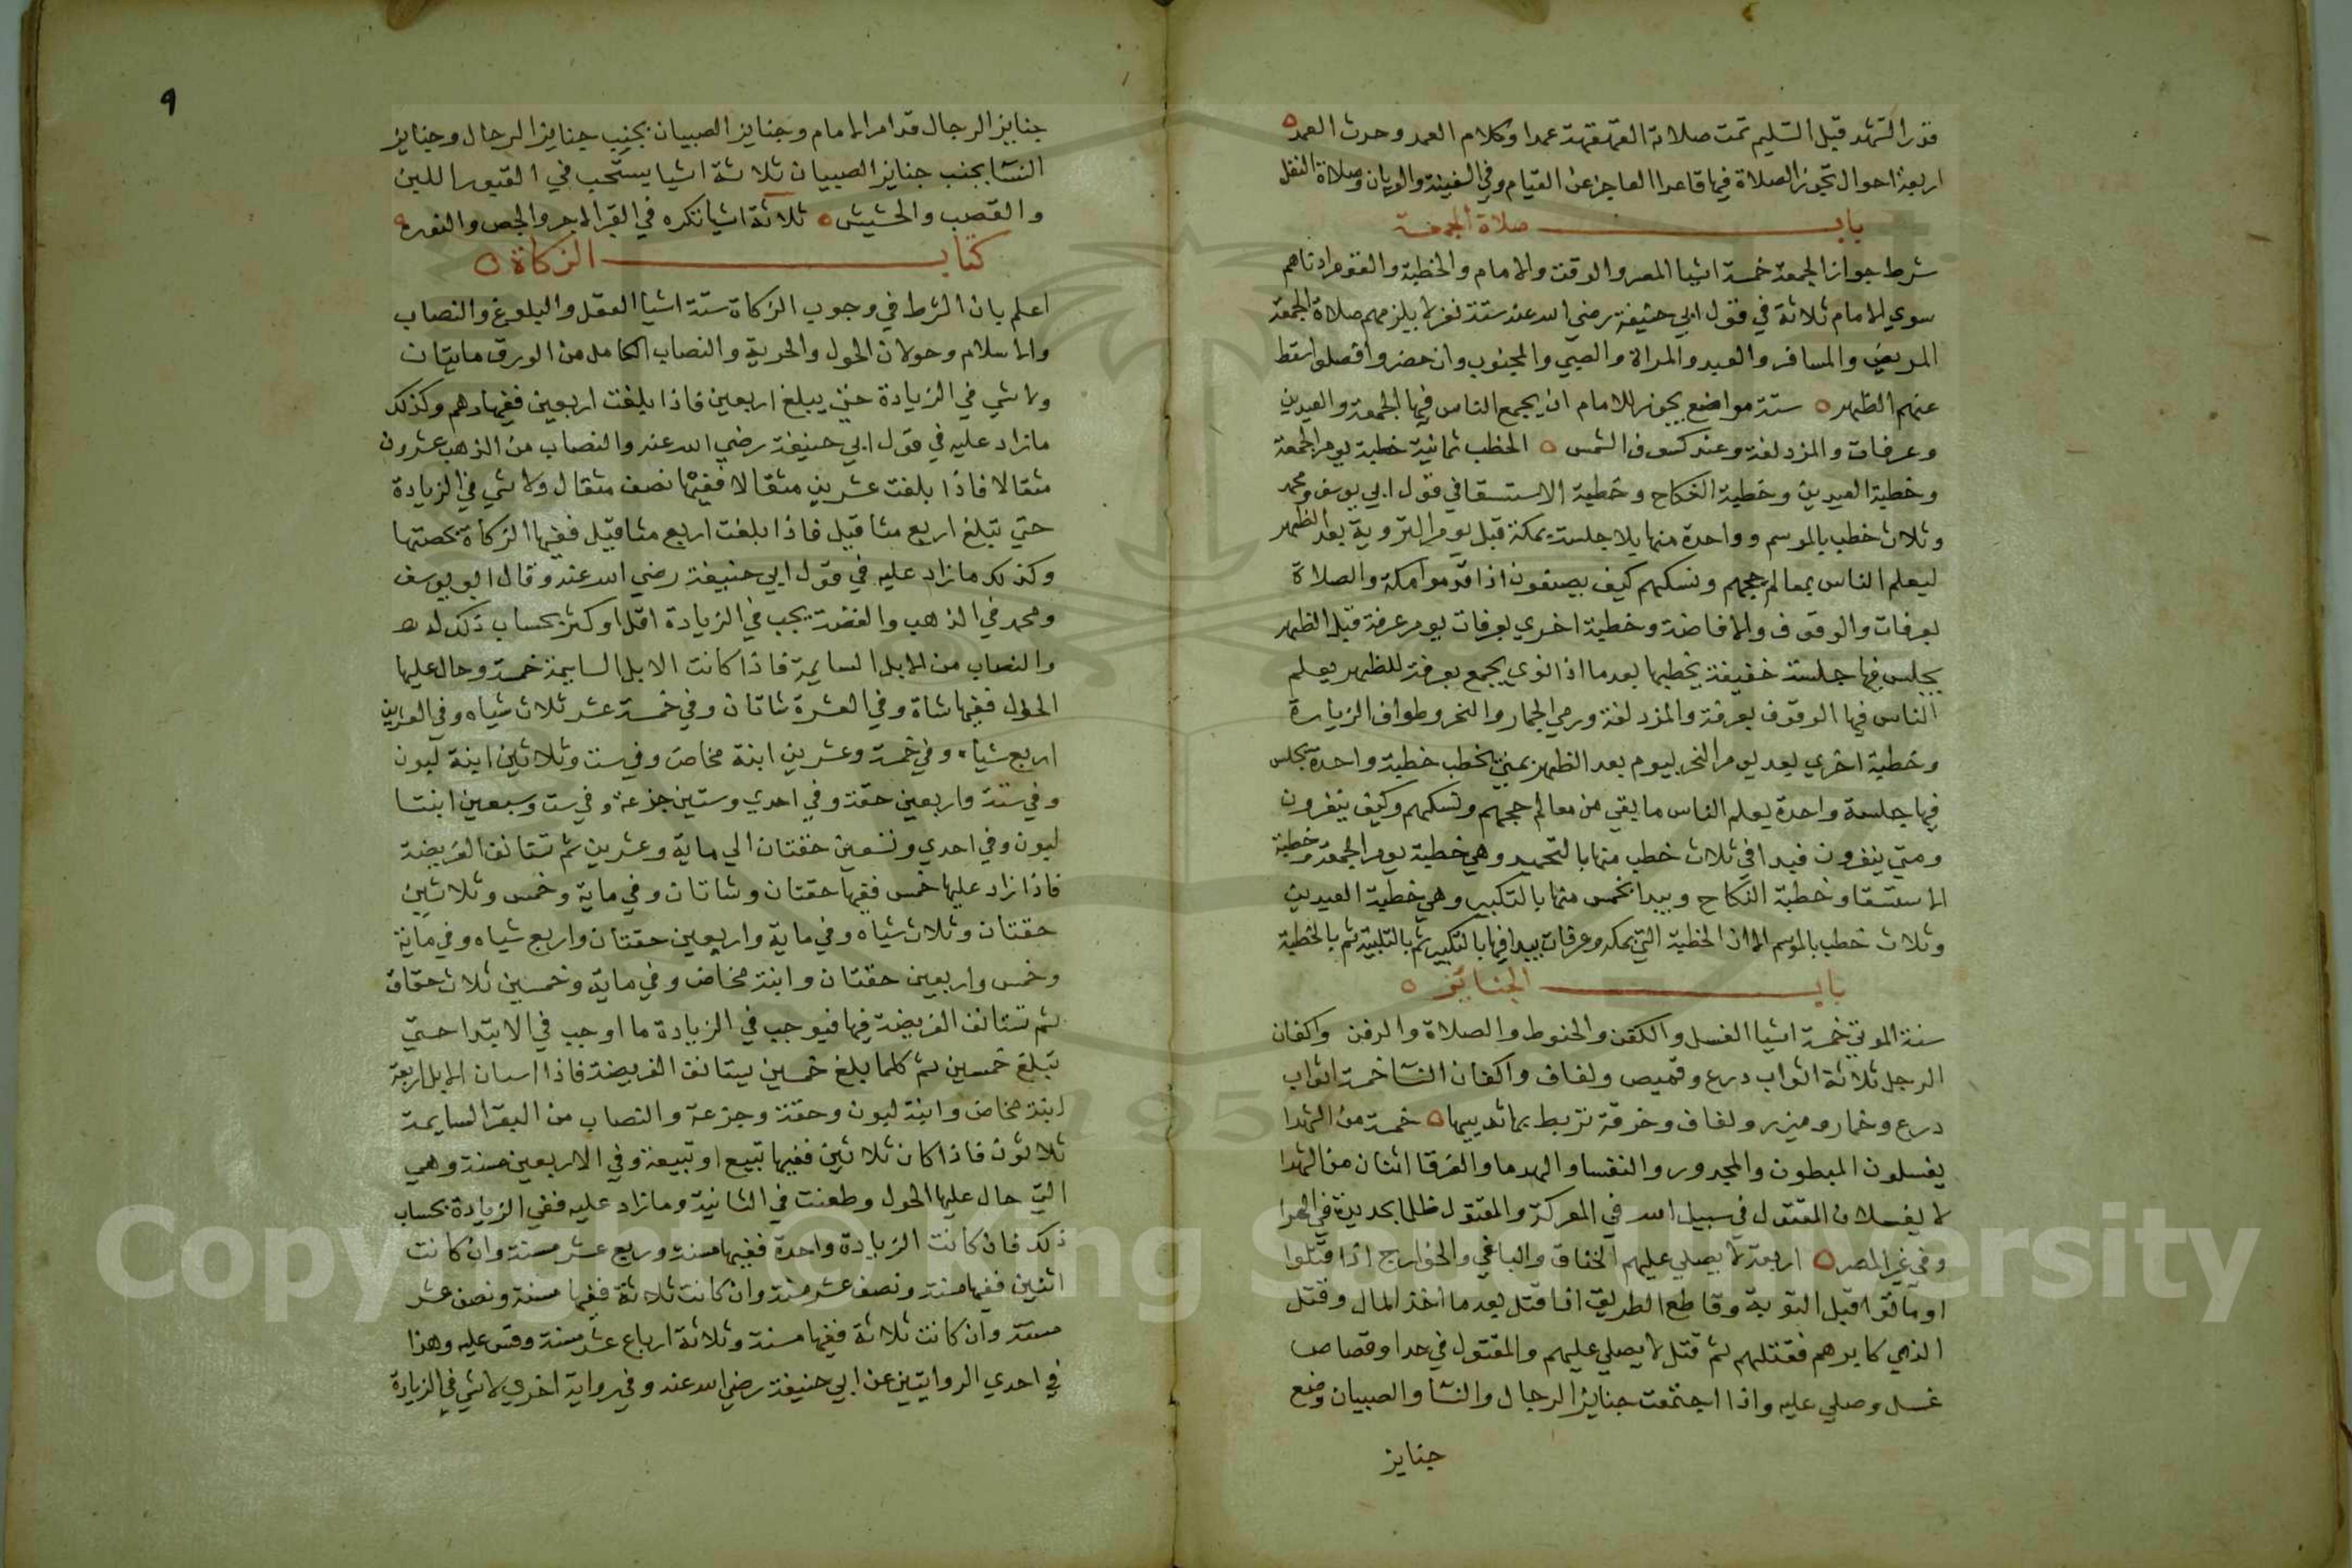 قدر التشهد قبل التسليم تمت صلاته القهقهة عمدا وكلام العمد وحدث العمد
اربعة احوال تجوز الصلاة فيها قاعدا العاجز عن القيام وفي السفينة والعريان وصلاة النفل
باب صلاة الجمعة
شرط جواز الجمعة خمسة اشيا المصر والوقت والامام والخطبة والقوم ادناهم
سوي الامام ثلاثة في قول ابي حنيفة رضي الله عنه ستة نفر لا يلزمهم صلاة الجمعة
المريض والمسافر والعبد والمراة والصبي والمجنون وان حضروا فصلوا سقط
عنهم الظهر ستة مواضع يجوز للامام ان يجمع الناس فيها الجمعة والعيدين
وعرفات والمزدلفة وعند كسوف الشمس الخطب ثمانية خطبة يوم الجمعة
وخطبة العيدين وخطبة النكاح وخطبة الاستسقا في قول ابي يوسف ومحمد
وثلاث خطب بالموسم وواحدة منها بلا جلسة بمكة قبل يوم التروية بعد الظهر
ليعلم الناس بمعالم حجهم ونسكهم كيف يصنفون اذا قدموا مكة والصلاة
بعرفات والوقوف والافاضة وخطبة اخري بعرفات يوم عرفة قبل الظهر
يجلس فيها جلسة خفيفة يخطبها بعدما اذا نوي يجمع بعرفة للظهر يعلم
الناس فيها الوقوف بعرفة والمزدلفة ورمي الجمار والنحر وطواف الزيارة
وخطبة اخري بعد يوم النحر بيوم بعد الظهر بمني يخطب خطبة واحدة يجلس
فيها جلسة واحدة يعلم الناس ما بقي من معالم حجهم ونسكهم وكيف ينفرون
ومتي ينفرون فيبدا في ثلاث خطب منها بالتحميد وهي خطبة يوم الجمعة وخطبة
الاستسقا وخطبة النكاح ويبدا بخمس منها بالتكبير وهي خطبة العيدين
وثلاث خطب بالموسم الا ان الخطبة التي بمكة وعرفات يبدا فيها بالتكبير ثم بالتلبية ثم بالخطبة
باب الجنايز
سنة الموتي خمسة اشيا الغسل والكفن والحنوط والصلاة والدفن واكفان
الرجل ثلاثة اثواب درع وقميص ولفاف واكفان النسا خمسة اثواب
درع وخمار وميزر ولفاف وخرقة تربط بها ثدييها خمسة من الشهدا
يغسلون المبطون والمجدور والنفسا والهدما والغرقا اثنان من الشهدا
لا يغسلان المقتول في سبيل الله في المعركة والمقتول ظلما بحديدة في
وفي غير المصر اربعة لا يصلي عليهم الخناق والباغي والخوارج اذا قتلوا
او ماتوا قبل التوبة وقاطع الطريق اذا قتل بعد ما اخذ المال وقتل
الذي كابرهم فقتلهم ثم قتل لا يصلي عليهم والمقتول في حد او قصاص
غسل وصلي عليه واذا اجتمعت جنايز الرجال والنسا والصبيان وضع
جنايز
٩
جنايز الرجال قدام الامام وجنايز الصبيان بجنب جنايز الرجال وجنايز
النسا بجنب جنايز الصبيان ثلاثة اشيا يستحب في القبور اللبن
والقصب والحشيش ثلاثة اشيا تكره في القبر الاجر والجص والنوره
كتاب الزكاة
اعلم بان الشرط في وجوب الزكاة ستة اشيا العقل والبلوغ والنصاب
والاسلام وحولان الحول والحرية والنصاب الكامل من الورق مايتان
ولا شي في الزيادة حتي يبلغ اربعين فاذا بلغت اربعين ففيها درهم وكذلك
مازاد عليه في قول ابي حنيفة رضي الله عنه والنصاب من الذهب عشرون
مثقالا فاذا بلغت عشرين مثقالا ففيها نصف مثقال ولا شي في الزيادة
حتي تبلغ اربع مثاقيل فاذا بلغت اربع مثاقيل ففيها الزكاة بحصتها
وكذلك مازاد عليه في قول ابي حنيفة رضي الله عنه وقال ابو يوسف
ومحمد في الذهب والفضة يجب في الزيادة اقل او كثر بحساب ذلك
والنصاب من الابل السايمة فاذا كانت الابل السايمة خمسة وحال عليها
الحول ففيها شاة وفي العشرة شاتان وفي خمسة عشر ثلاث شياه وفي العشرين
اربع شياه وفي خمسة وعشرين ابنة مخاض وفي ست وثلاثين ابنة لبون
وفي ستة واربعين حقة وفي احدي وستين جذعة وفي ست وسبعين ابنتا
لبون وفي احدي وتسعين حقتان الي ماية وعشرين ثم تستانف الفريضة
فاذا زاد عليها خمس ففيها حقتان وشاتان وفي ماية وخمس وثلاثين
حقتان وثلاث شياه وفي ماية واربعين حقتان واربع شياه وفي ماية
وخمس واربعين حقتان وابنة مخاض وفي ماية وخمسين ثلاث حقاق
ثم تستانف الفريضة فيها فيوجب في الزيادة ما اوجب في الابتدا حتي
تبلغ خمسين ثم كلما بلغ خمسين يستانف الفريضة فاذا اسنان الابل اربعة
ابنة مخاض وابنة لبون وحقة وجزعة والنصاب من البقر السايمة
ثلاثون فاذا كان ثلاثين ففيها تبيع او تبيعة وفي الاربعين مسنة وهي
التي حال عليها الحول وطعنت في الثانية ومازاد عليه ففي الزيادة بحساب
ذلك فان كانت الزيادة واحدة ففيها مسنة وربع عشر مسنة وان كانت
اثنين ففيها مسنة ونصف عشر مسنة وان كانت ثلاثة ففيها مسنة ونصف عشر
مسنة وان كانت ثلاثة ففيها مسنة وثلاثة ارباع عشر مسنة وقس عليه وهذا
في احدي الروايتين عن ابي حنيفة رضي الله عنه وفي رواية اخري لا شي في الزيادة
Copyright © King Saud University